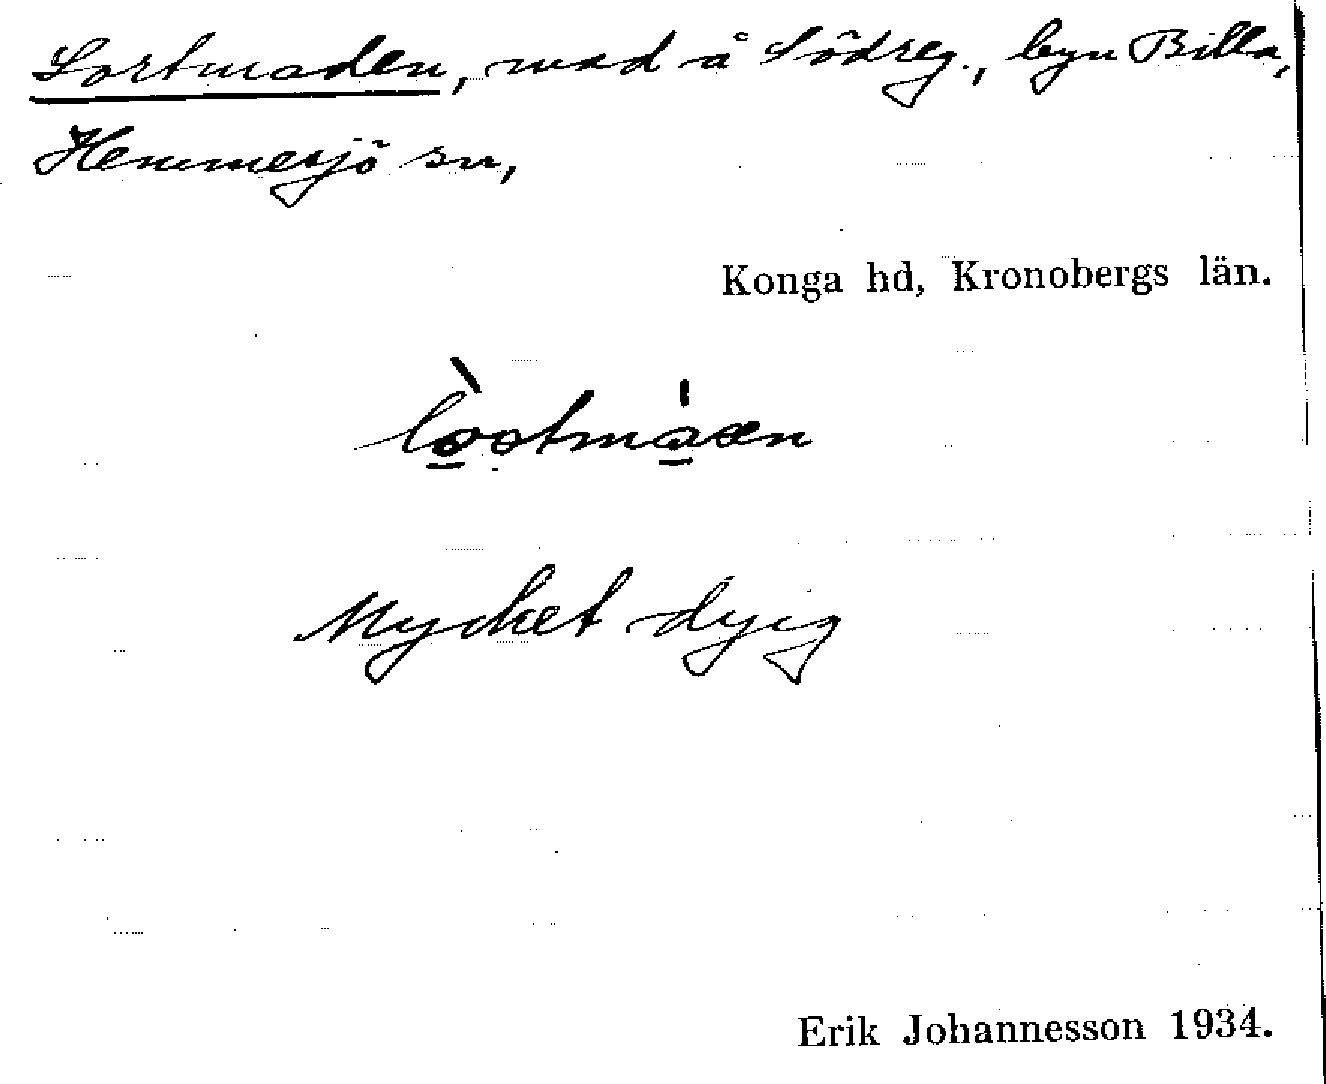 Lortmaden, mad å Södreg., byn Billa,
Hemmesjö sn,
Konga hd, Kronobergs län.
Mycket dyig
Erik Johannesson 1934.